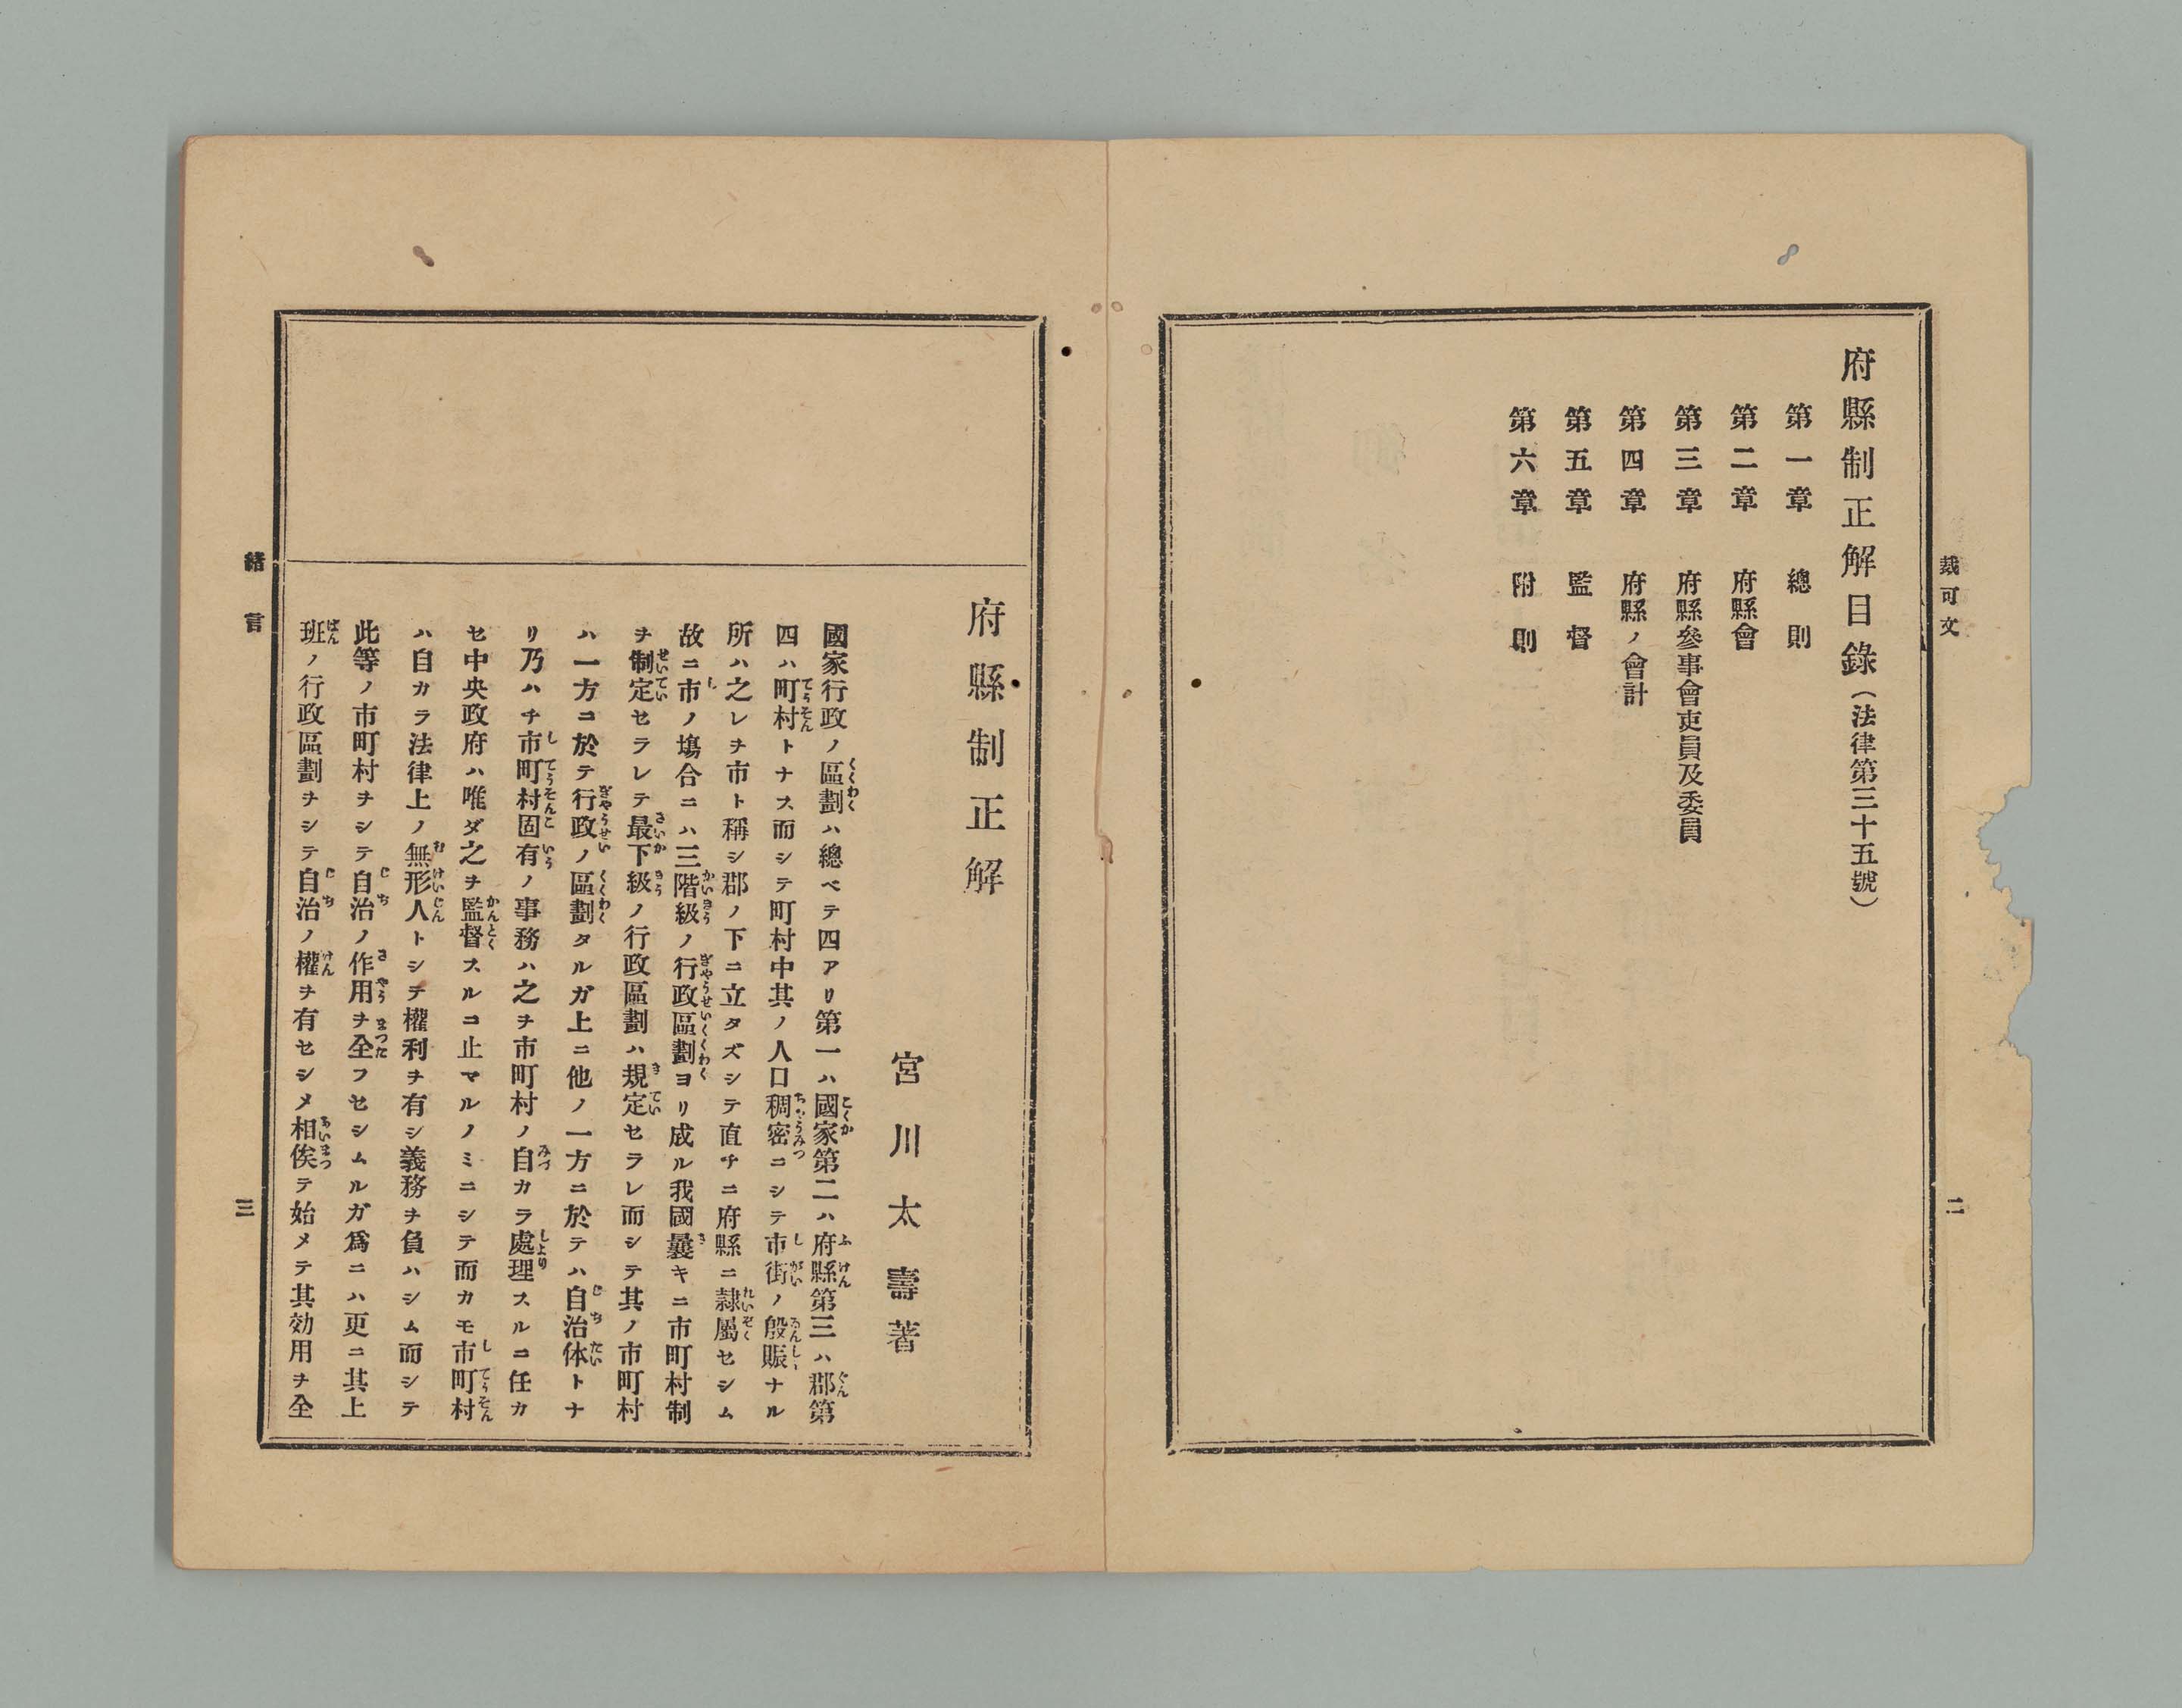 裁可文
二
府縣制正解目錄（法律第三十五號）
第一章 總則
第二章 府縣會
第三章 府縣參事會吏員及委員
第四章 府縣ノ會計
第五章 監督
第六章 附則
府縣制正解
宮川太壽著
國家行政ノ區劃ハ總ベテ四アリ第一ハ國家第二ハ府縣第三ハ郡第
四ハ町村トナス而シテ町村中其ノ人口稠密ニシテ市街ノ殷賑ナル
所ハ之レヲ市ト稱シ郡ノ下ニ立タズシテ直チニ府縣ニ隷屬セシム
故ニ市ノ塲合ニハ三階級ノ行政區劃ヨリ成ル我國曩キニ市町村制
ヲ制定セラレテ最下級ノ行政區劃ハ規定セラレ而シテ其ノ市町村
ハ一方ニ於テ行政ノ區劃タルガ上ニ他ノ一方ニ於テハ自治体トナ
リ乃ハチ市町村固有ノ事務ハ之ヲ市町村ノ自カラ處理スルニ任カ
セ中央政府ハ唯ダ之ヲ監督スルニ止マルノミニシテ而カモ市町村
ハ自カラ法律上ノ無形人トシテ權利ヲ有シ義務ヲ負ハシム而シテ
此等ノ市町村ヲシテ自治ノ作用ヲ全フセシムルガ爲ニハ更ニ其上
班ノ行政區劃ヲシテ自治ノ權ヲ有セシメ相俟テ始メテ其効用ヲ全
緒言
三